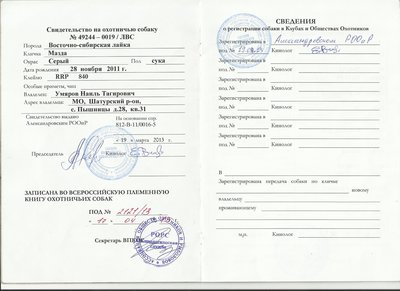 Свидетельство на охотничью собаку
№ 49244 – 0019 / ЛВС
Порода Восточно-сибирская лайка
Кличка Мазда
Окрас Серый Пол суки
Дата рождения 28 ноября 2011 г.
Клеймо RRP 840
Особые приметы, чип
Владелец: Умяров Наиль Тагирович
Адрес владельца: МО, Шатурский р-он,
с. Пышлицы д.28, кв.31
Свидетельство выдано На основании спр.
Александровским РООиР 812-В-11/0016-5
« 19 » марта 2013 г.
Председатель Кинолог
ЗАПИСАНА ВО ВСЕРОССИЙСКУЮ ПЛЕМЕННУЮ
КНИГУ ОХОТНИЧЬИХ СОБАК
ПОД №
Секретарь ВПКОС
РОРС
СВЕДЕНИЯ
о регистрации собаки в Клубах и Обществах Охотников
Зарегистрирована в Александровском РООиР
под № Кинолог
Зарегистрирована в
под № Кинолог
Зарегистрирована в
под № Кинолог
Зарегистрирована в
под № Кинолог
Зарегистрирована в
под № Кинолог
Зарегистрирована в
под № Кинолог
Зарегистрирована передача собаки по кличке
новому
владельцу
проживающему
м.п. Кинолог